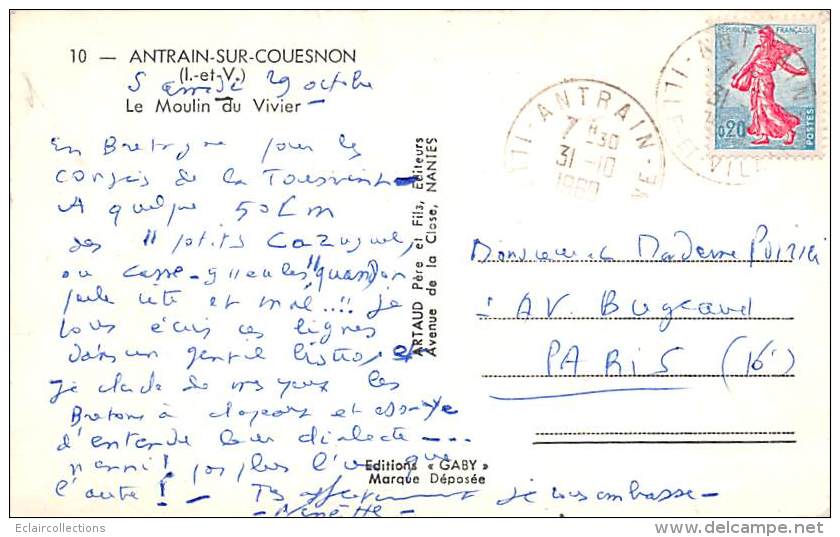 10 — ANTRAIN-SUR-COUESNON
(I.-et-V.)
Samedi 29 octobre
Le Moulin du Vivier
En Bretagne pour les
congés de la Toussaint
A quelque 50 Km
des "ptits
ou casse-gueules" quand on
parle vite et mal..!! je
vous écris ces lignes
dans un gentil bistro et
je de mes yeux les
Bretons à et essaye
d'entendre leur dialecte ---
nenni! pas plus l'un que
l'autre! - Très affectueusement je vous embrasse -
- Ninette -
ARTAUD Père et Fils, Editeurs
Avenue de la Close, NANTES
Editions « GABY »
Marque Déposée
REPUBLIQUE FRANÇAISE
0,20
POSTES
ANTRAIN
7 H30
31-10
1960
Monsieur et Madame Poirier
AV. Bugeaud
PARIS (16e)
Eclaircollections
www.delcampe.net